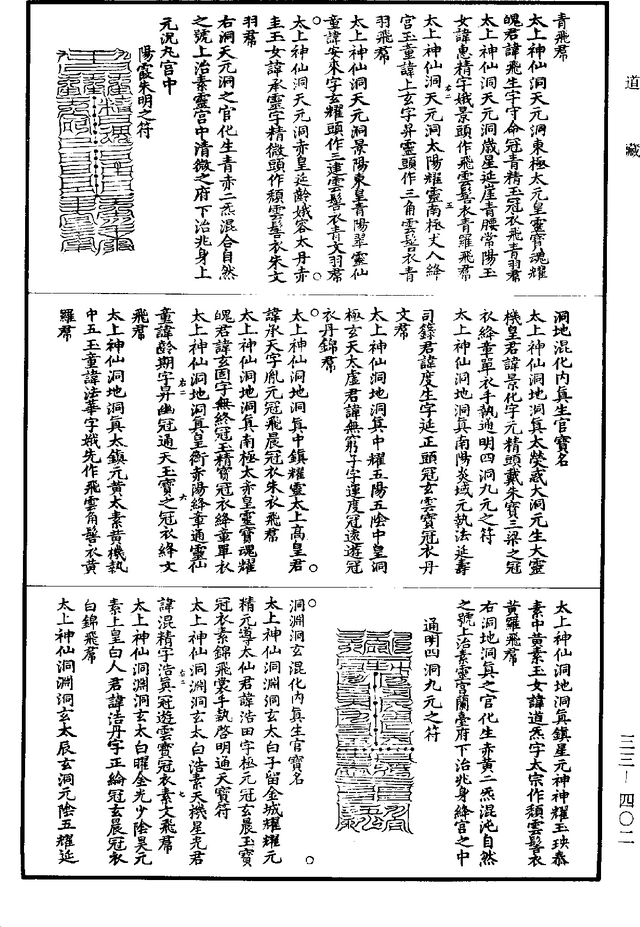 道藏
青飛帬
太上神仙洞天元洞東極太元皇靈寶魂耀
魄君諱飛生字守命冠青精玉冠衣飛青羽帬
太上神仙洞天元洞歲星延崖青腰常陽玉
女諱惠精字娥景頭作飛雲髻衣青羅飛帬
太上神仙洞天元洞太陽耀靈南極丈人絳
宮玉童諱上玄字昇靈頭作三角雲髻衣青
羽飛帬
太上神仙洞天元洞景陽東皇青陽翠靈仙
童諱安來字玄耀頭作三建雲髻衣青文羽帬
太上神仙洞天元洞赤皇延齡娥容太丹赤
圭玉女諱承靈字精微頭作頹雲髻衣朱文
羽帬
右洞天元洞之官化生青赤二炁混合自然
之號上治素靈宮中清微之府下治兆身上
元沉丸宮中
陽霞朱明之符
洞地混化內真生官寶名
太上神仙洞地洞真太熒惑大洞元生大靈
機皇君諱景化字元精頭戴朱寶三梁之冠
衣絳章單衣手執通明四洞九元之符
太上神仙洞地洞真南陽炎域元執法延壽
司錄君諱度生字延正頭冠玄雲寶冠衣丹
文帬
太上神仙洞地洞真中耀五陽五陰中皇洞
極玄天太虛君諱無窮子字運度冠遠遊冠
衣丹錦帬
太上神仙洞地洞真中鎮耀靈太上高皇君
諱承天字胤元冠飛晨冠衣朱衣飛帬
太上神仙洞地洞真南極太赤皇靈寶魂耀
魄君諱玄固字無終冠玉精寶冠衣絳章單衣
太上神仙洞地洞真皇衡赤陽絳童通靈仙
童諱齡期字昇幽冠通天玉寶之冠衣絳文
飛帬
太上神仙洞地洞真太鎮元黃太素黃機執
中五玉童諱法華字娥先作飛雲角髻衣黃
羅帬
太上神仙洞地洞真鎮星元神神耀玉玦泰
素中黃素玉女諱道炁字太宗作頹雲髻衣
黃羅飛帬
右洞地洞真之官化生赤黃二炁混沌自然
之號上治素靈宮蘭臺府下治兆身絳宮之中
通明四洞九元之符
洞淵洞玄混化內真生官寶名
太上神仙洞淵洞玄太白子留金城耀耀元
精元導太仙君諱浩田字極元冠玄晨玉寶
冠衣素錦飛裳手執啓明通天寶符
太上神仙洞淵洞玄太白浩素天機星光君
諱混精字浩真冠遊雲寶冠衣素文飛帬
太上神仙洞淵洞玄太白曜金光少陰昊元
素上皇白人君諱浩丹字正綸冠玄晨冠衣
白錦飛帬
太上神仙洞淵洞玄太辰玄洞元陰五耀延
三三-四〇二